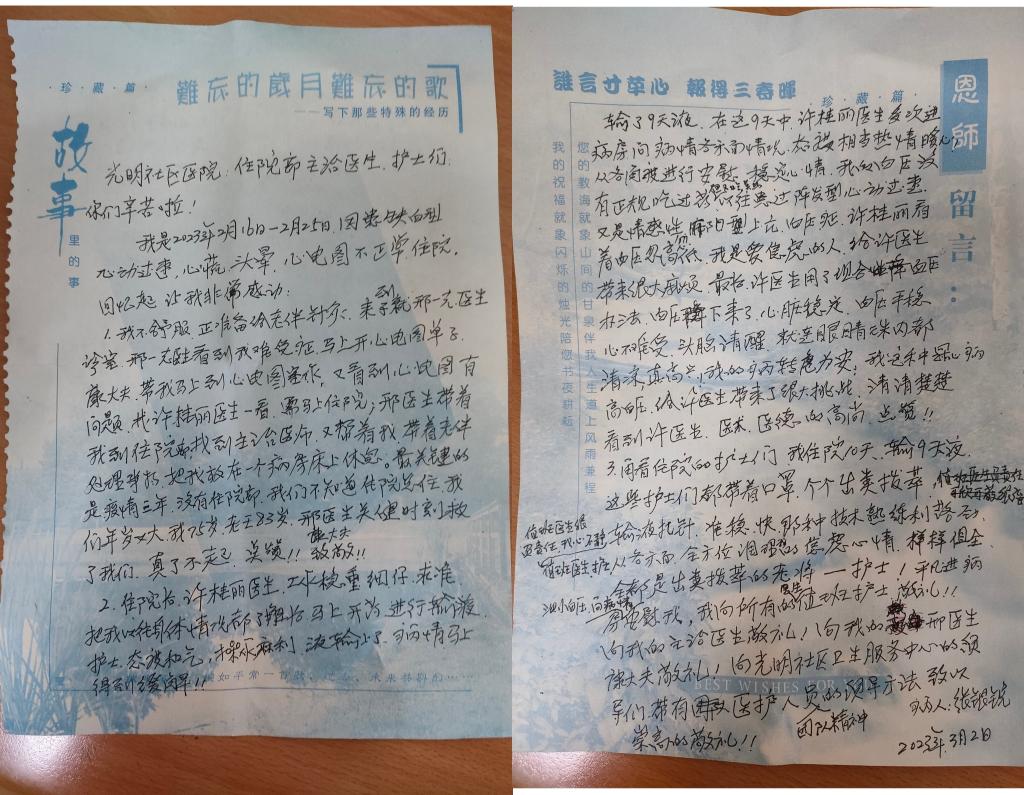 ·珍藏篇·
難忘的歲月難忘的歌
——写下那些特殊的经历
故事
里的事
光明社区医院：住院部主治医生，护士们，
你们辛苦啦！
我是2023年2月16日-2月25日，因
心动过速，心慌，头晕，心电图不正常住院，
回忆起让我非常感动：
1.我不舒服，正准备给老伴针灸，来到邢一元医生
诊室，邢一元医生看到我难受症，马上开心电图单子，
康大夫，带我马上到心电图室作，又看到心电图有
问题，找许桂丽医生一看，需马上住院；邢医生带着
我到住院部找到主治医师，又帮着我，带着老伴
处理针灸，把我放在一个病房床上休息。最关键的
是疫情三年，没有住院部，我们不知道住院怎住，我
们年岁又大，我75岁，老王83岁，邢医生关键时刻救
康大夫
了我们，真了不起，点赞！！致敬！！
2.住院后，许桂丽医生，工作稳重细仔，求准，
把我以往身体情况都了解后马上开药，进行输液，
护士，态度和气，操作麻利，液输上了，病情马上
得到缓解！！
誰言寸草心 報得三春暉
珍藏篇·
恩師
留言：
您的教诲就象山间的甘泉伴我人生道上风雨兼程
我的祝福就象闪烁的烛光陪您书夜耕耘
输了9天液，在这9天中，许桂丽医生多次进
病房问病情各方面情况，态度相当热情暖心，
从各角度进行安慰，稳定心情，我的血压没
有正规吃过药，往年患过阵发型心动过速，
又是情感性，阵发型上応，血压症，许桂丽看
着血压忽高忽低，我是爱焦虑的人，给许医生
带来很大麻烦，最后许医生用了现合降血压
办法，血压降下来了，心脏稳定，血压平稳
心不难受，头脑清醒，就连眼睛珠内都
清凉，真高兴！我的病转危为安，我这种冠心病
高血压，给许医生带来了很大挑战，清清楚楚
看到许医生，医术，医德的高尚，点赞！！
3.再看住院的护士们，我住院10天，输9天液，
这些护士们都带着口罩，个个出类拔萃，
值班医生很
负责任，我心不静
输液扎针，准，稳，快，那种技术熟练利落，
值班医生，从各方面，全方位调理您的焦虑心情，样样俱全，
全都是出类拔萃的老将——护士！平凡进病
房安慰我，我向所有的值班护士敬礼！！
医生
向我的主治医生敬礼！向我的邢医生
康大夫敬礼！向光明社区卫生服务中心的领
BEST WISHES FOR
导们，带有医护人员的领导方法致以
团队精神
崇高的敬礼！！
病人：张银锐
2023年.3月2日